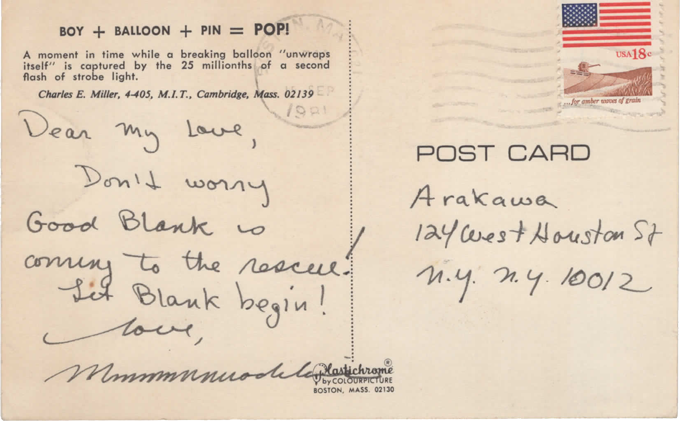 BOY + BALLOON + PIN = POP!
A moment in time while a breaking balloon "unwraps
itself" is captured by the 25 millionths of a second
flash of strobe light.
Charles E. Miller, 4-405, M.I.T., Cambridge, Mass. 02139
Dear my Love,
Don't worry
Good Blank is
coming to the rescue!
Let Blank begin!
love,
Plastichrome ®
by COLOURPICTURE
BOSTON, MASS. 02130
SEP
1981
USA 18c
for amber waves of grain
POST CARD
Arakawa
124 West Houston St
N.Y. N.Y. 10012